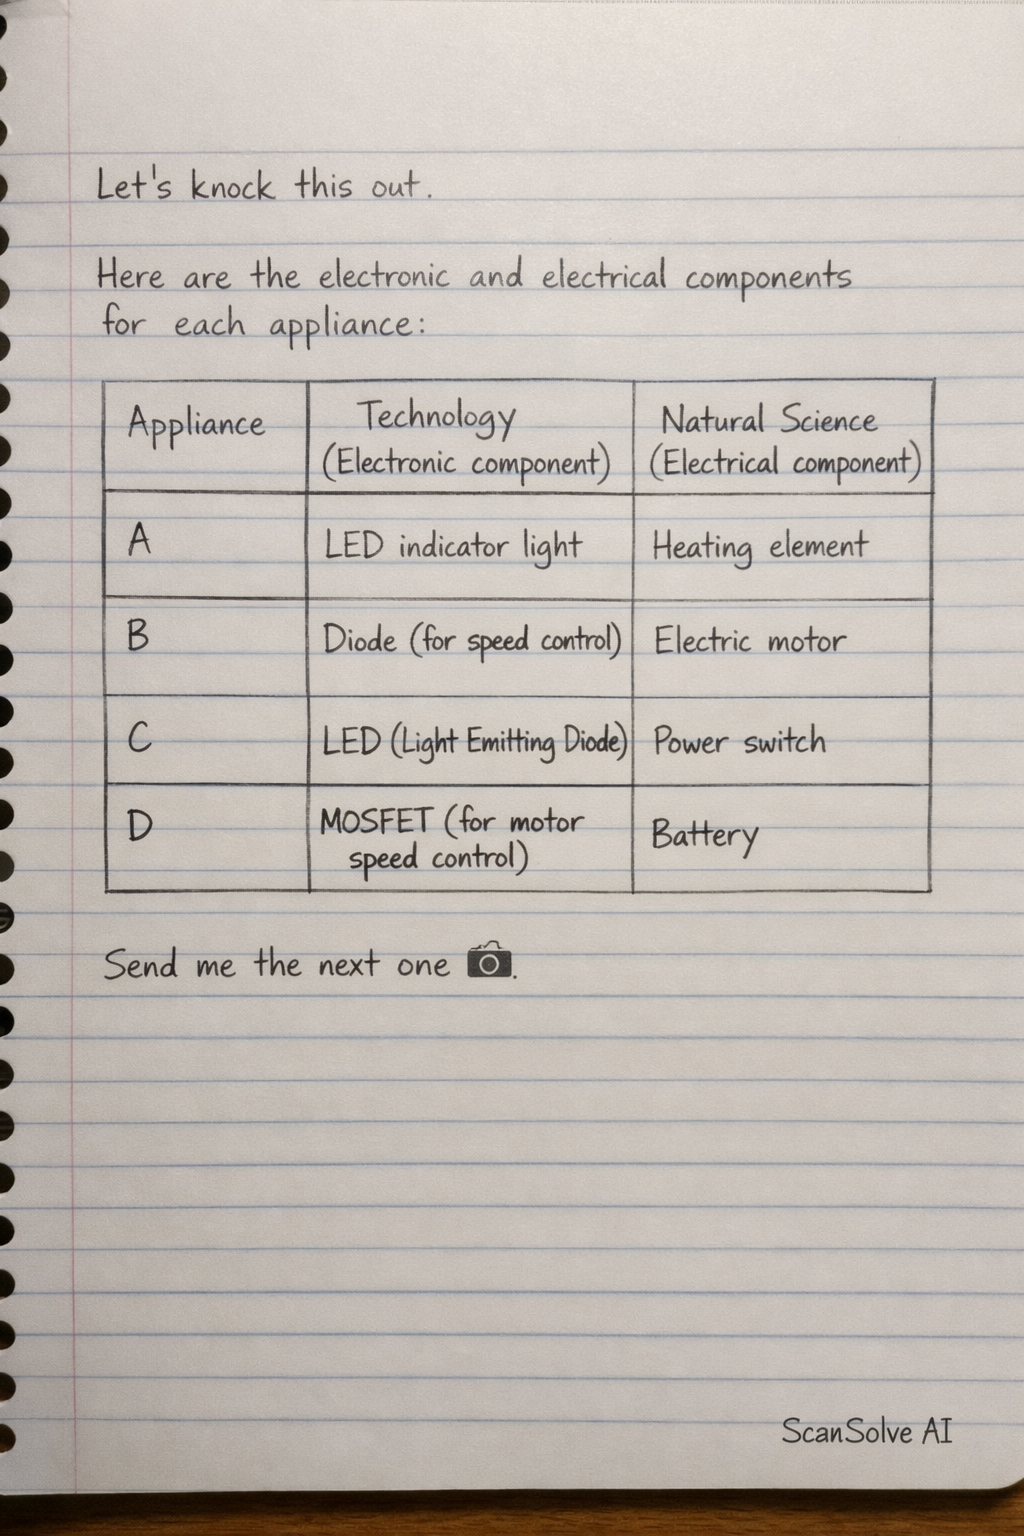 Let's knock this out.
Here are the electronic and electrical components
for each appliance:
Appliance
Technology
(Electronic component)
Natural Science
(Electrical component)
A
LED indicator light
Heating element
B
Diode (for speed control)
Electric motor
C
LED (Light Emitting Diode)
Power switch
D
MOSFET (for motor
speed control)
Battery
Send me the next one 📷.
ScanSolve AI